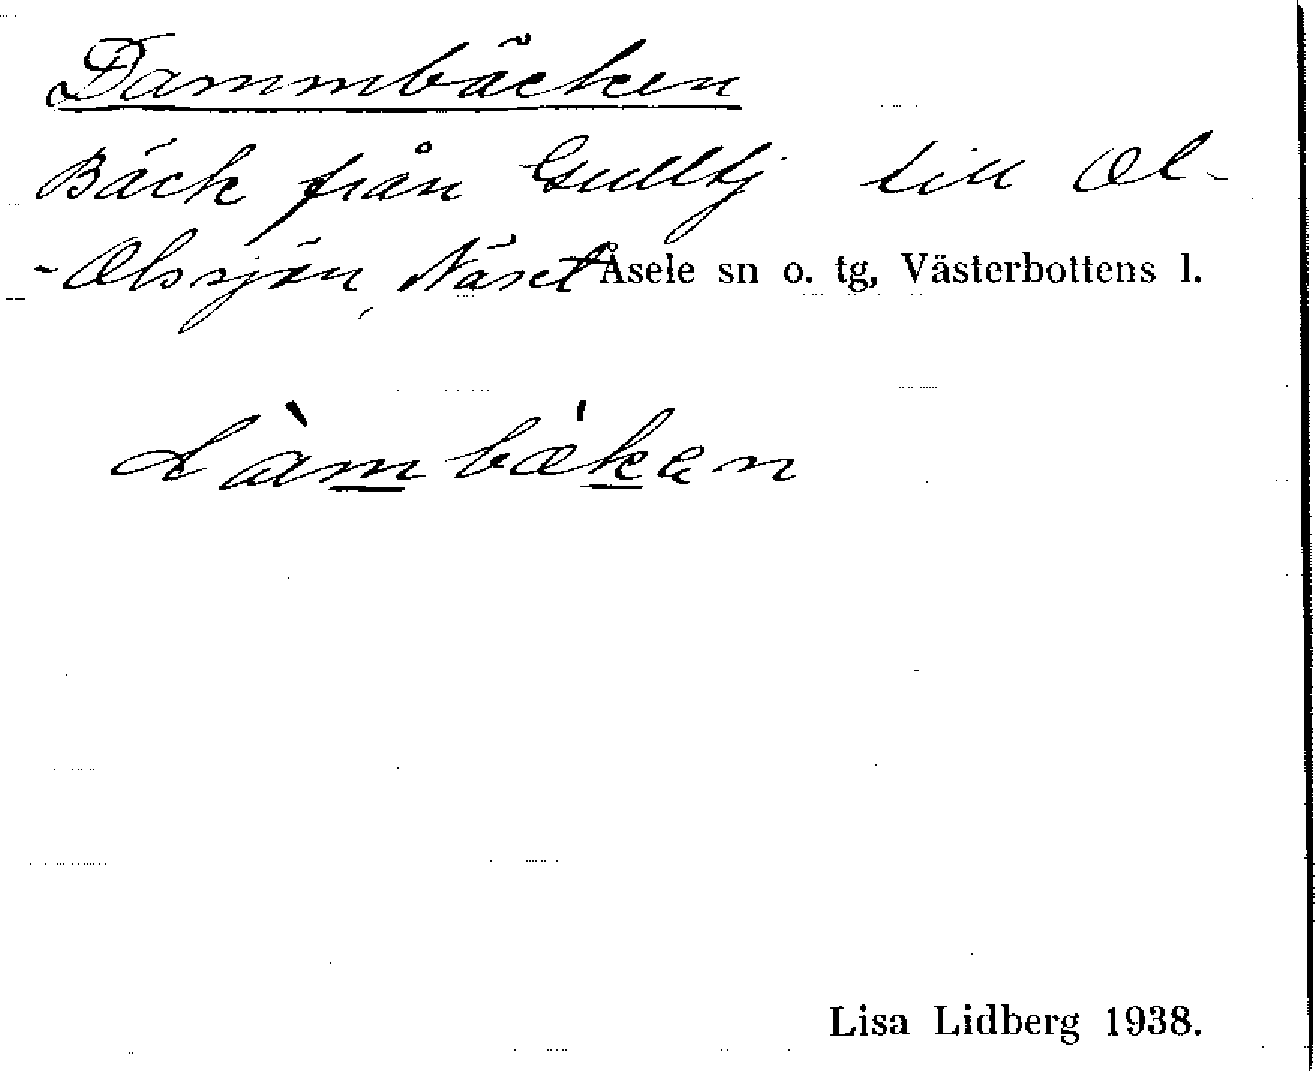 Dammbäcken
Bäck från Gulltj till Ol-
-Olssjön, Näset Åsele sn o. tg, Västerbottens l.
dàmbækən
Lisa Lidberg 1938.